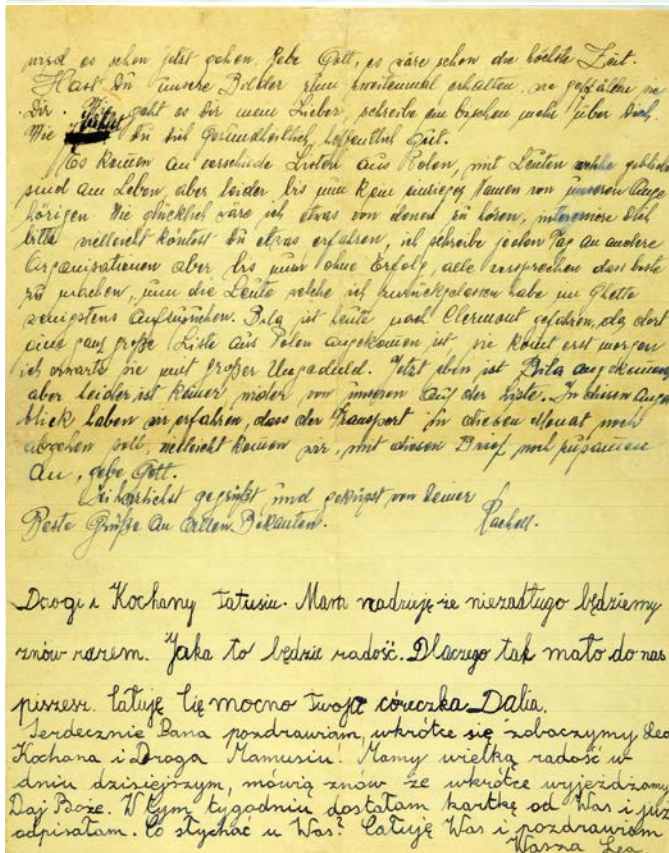 wird es schon jetzt gehen. Gebe Gott, es wäre schon die höchste Zeit.
Hast Du unsere Bilder zum zweitenmal erhalten, wie gefallen sie
Dir. Wie geht es Dir mein Lieber, schreibe ein bischen mehr über Dich.
Wie Du Dich Gesundheitlich, hoffentlich Gut.
Es kommen an verschide Listen aus Polen, mit Leuten welche geblieben
sind am Leben, aber leider bis nun kein einziges Namen von unseren Ange
hörigen. Wie glücklich wäre ich etwas von denen zu hören, Dich
bitte vielleicht köntest Du etwas erfahren, ich schreibe jeden Tag an andere
Organisationen aber bis nun ohne Erfolg, alle versprechen dass beste
zu machen, um die Leute welche ich zurückgelassen habe im Ghetto
wenigstens Aufzusuchen. Bila ist heute nach Clermont gefahren, da dort
eine ganz große Liste aus Polen angekommen ist, sie komt erst morgen
ich erwarte sie mit großer Ungeduld. Jetzt eben ist Bila angekommen,
aber leider ist keiner wider von unseren auf der Liste. In diesen Augen
blick haben wir erfahren, dass der Transport in diesen Monat noch
abgehen soll, vielleicht kommen wir, mit diesen Brief noch zusammen
an, gebe Gott.
Sei herzlichst gegrüßt und geküsst von Deiner
Beste Grüße an allen Bekanten. Rachell.
Drogi i Kochany Tatusiu. Mam nadzieję że niezadługo będziemy
znów razem. Jaka to będzie radość. Dlaczego tak mało do nas
piszesz. Całuję Cię mocno Twoja córeczka Dalia.
Serdecznie Pana pozdrawiam, wkrótce się zobaczymy Lea
Kochana i Droga Mamusiu! Mamy wielką radość w
dniu dzisiejszym, mówią znów że wkrótce wyjeżdżamy
Daj Boże. W tym tygodniu dostałam kartkę od Was i już
odpisałam. Co słychać u Was? Całuję Was i pozdrawiam
Wasza Lea.